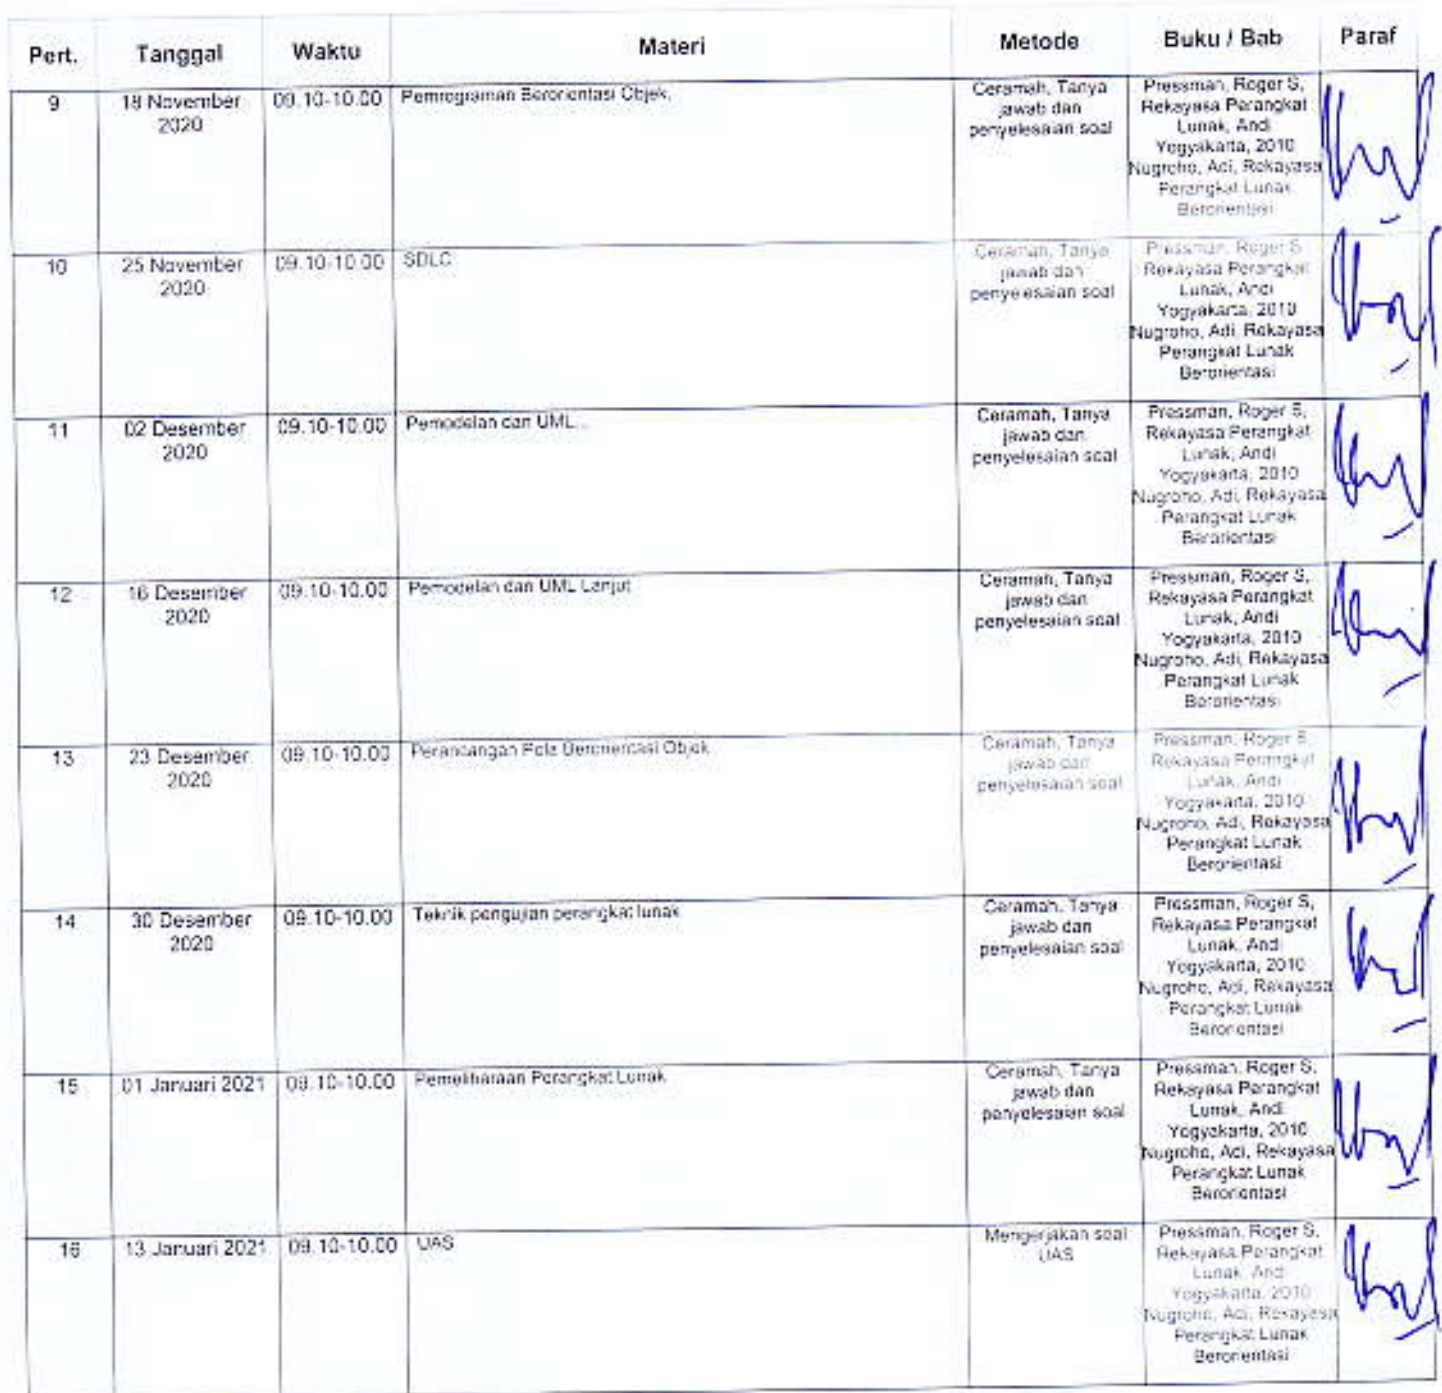 Pert. Tanggal Waktu Materi Metode Buku / Bab Paraf
9 18 November 2020 09.10-10.00 Pemrograman Berorientasi Objek. Ceramah, Tanya jawab dan penyelesaian soal
Pressman, Roger S,
Rekayasa Perangkat
Lunak, Andi
Yogyakarta, 2010
Nugroho, Adi, Rekayasa
Perangkat Lunak
Berorientasi
10 25 November 2020 09.10-10.00 SDLC Ceramah, Tanya jawab dan penyelesaian soal
Pressman, Roger S,
Rekayasa Perangkat
Lunak, Andi
Yogyakarta, 2010
Nugroho, Adi, Rekayasa
Perangkat Lunak
Berorientasi
11 02 Desember 2020 09.10-10.00 Pemodelan dan UML Ceramah, Tanya jawab dan penyelesaian soal
Pressman, Roger S,
Rekayasa Perangkat
Lunak, Andi
Yogyakarta, 2010
Nugroho, Adi, Rekayasa
Perangkat Lunak
Berorientasi
12 16 Desember 2020 09.10-10.00 Pemodelan dan UML Lanjut Ceramah, Tanya jawab dan penyelesaian soal
Pressman, Roger S,
Rekayasa Perangkat
Lunak, Andi
Yogyakarta, 2010
Nugroho, Adi, Rekayasa
Perangkat Lunak
Berorientasi
13 23 Desember 2020 09.10-10.00 Perancangan Pola Berorientasi Objek Ceramah, Tanya jawab dan penyelesaian soal
Pressman, Roger S,
Rekayasa Perangkat
Lunak, Andi
Yogyakarta, 2010
Nugroho, Adi, Rekayasa
Perangkat Lunak
Berorientasi
14 30 Desember 2020 09.10-10.00 Teknik pengujian perangkat lunak Ceramah, Tanya jawab dan penyelesaian soal
Pressman, Roger S,
Rekayasa Perangkat
Lunak, Andi
Yogyakarta, 2010
Nugroho, Adi, Rekayasa
Perangkat Lunak
Berorientasi
15 01 Januari 2021 09.10-10.00 Pemeliharaan Perangkat Lunak Ceramah, Tanya jawab dan penyelesaian soal
Pressman, Roger S,
Rekayasa Perangkat
Lunak, Andi
Yogyakarta, 2010
Nugroho, Adi, Rekayasa
Perangkat Lunak
Berorientasi
16 13 Januari 2021 09.10-10.00 UAS Mengerjakan soal UAS
Pressman, Roger S,
Rekayasa Perangkat
Lunak, Andi
Yogyakarta, 2010
Nugroho, Adi, Rekayasa
Perangkat Lunak
Berorientasi